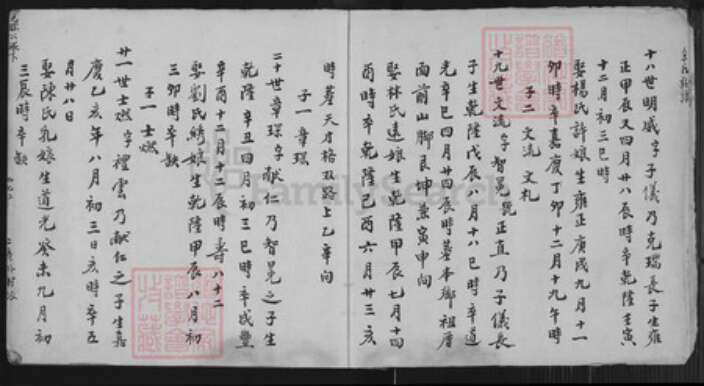 十八世明威字子儀乃克瑞長子生雍
正甲辰又四月廿八辰時卒乾隆壬寅
十二月初三巳時
娶楊氏許娘生雍正庚戌九月十一
卯時卒嘉慶丁卯十二月十九午時
子二文流文札
十九世文流字智晃號正直乃子儀長
子生乾隆戊辰 月十八巳時卒道
光辛巳四月廿四辰時墓本鄉祖厝
面前山腳艮坤兼寅申向
娶林氏遠娘生乾隆甲辰七月十四
酉時卒乾隆己酉六月廿三亥
時墓天才格双路上乙辛向
子一章琛
二十世章琛字献仁乃智晃之子生
乾隆辛丑四月初三巳時卒咸豐
辛酉十二月十二辰時壽八十二
娶劉氏 娘生乾隆甲辰八月初
三卯時卒缺
子一士燃
廿一世士燃字禮雲乃献仁之子生嘉
慶乙亥年八月初三日亥時卒五
月廿八日
娶陳氏乳娘生道光癸未九月初
三辰時卒缺
FamilySearch